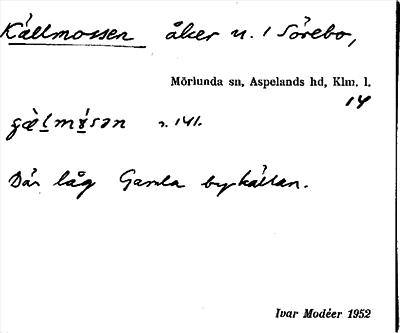 Källmossen åker n. i Sörebo,
Mörlunda sn, Aspelands hd, Klm. l.
14
s. 141.
Där låg Gamla bykällan.
Ivar Modéer 1952